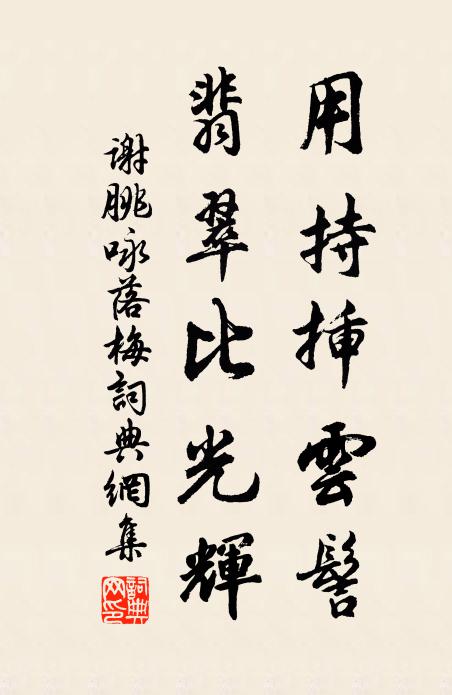 用持插雲髻
翡翠比光輝
謝朓咏落梅詞典網集
詞典網印